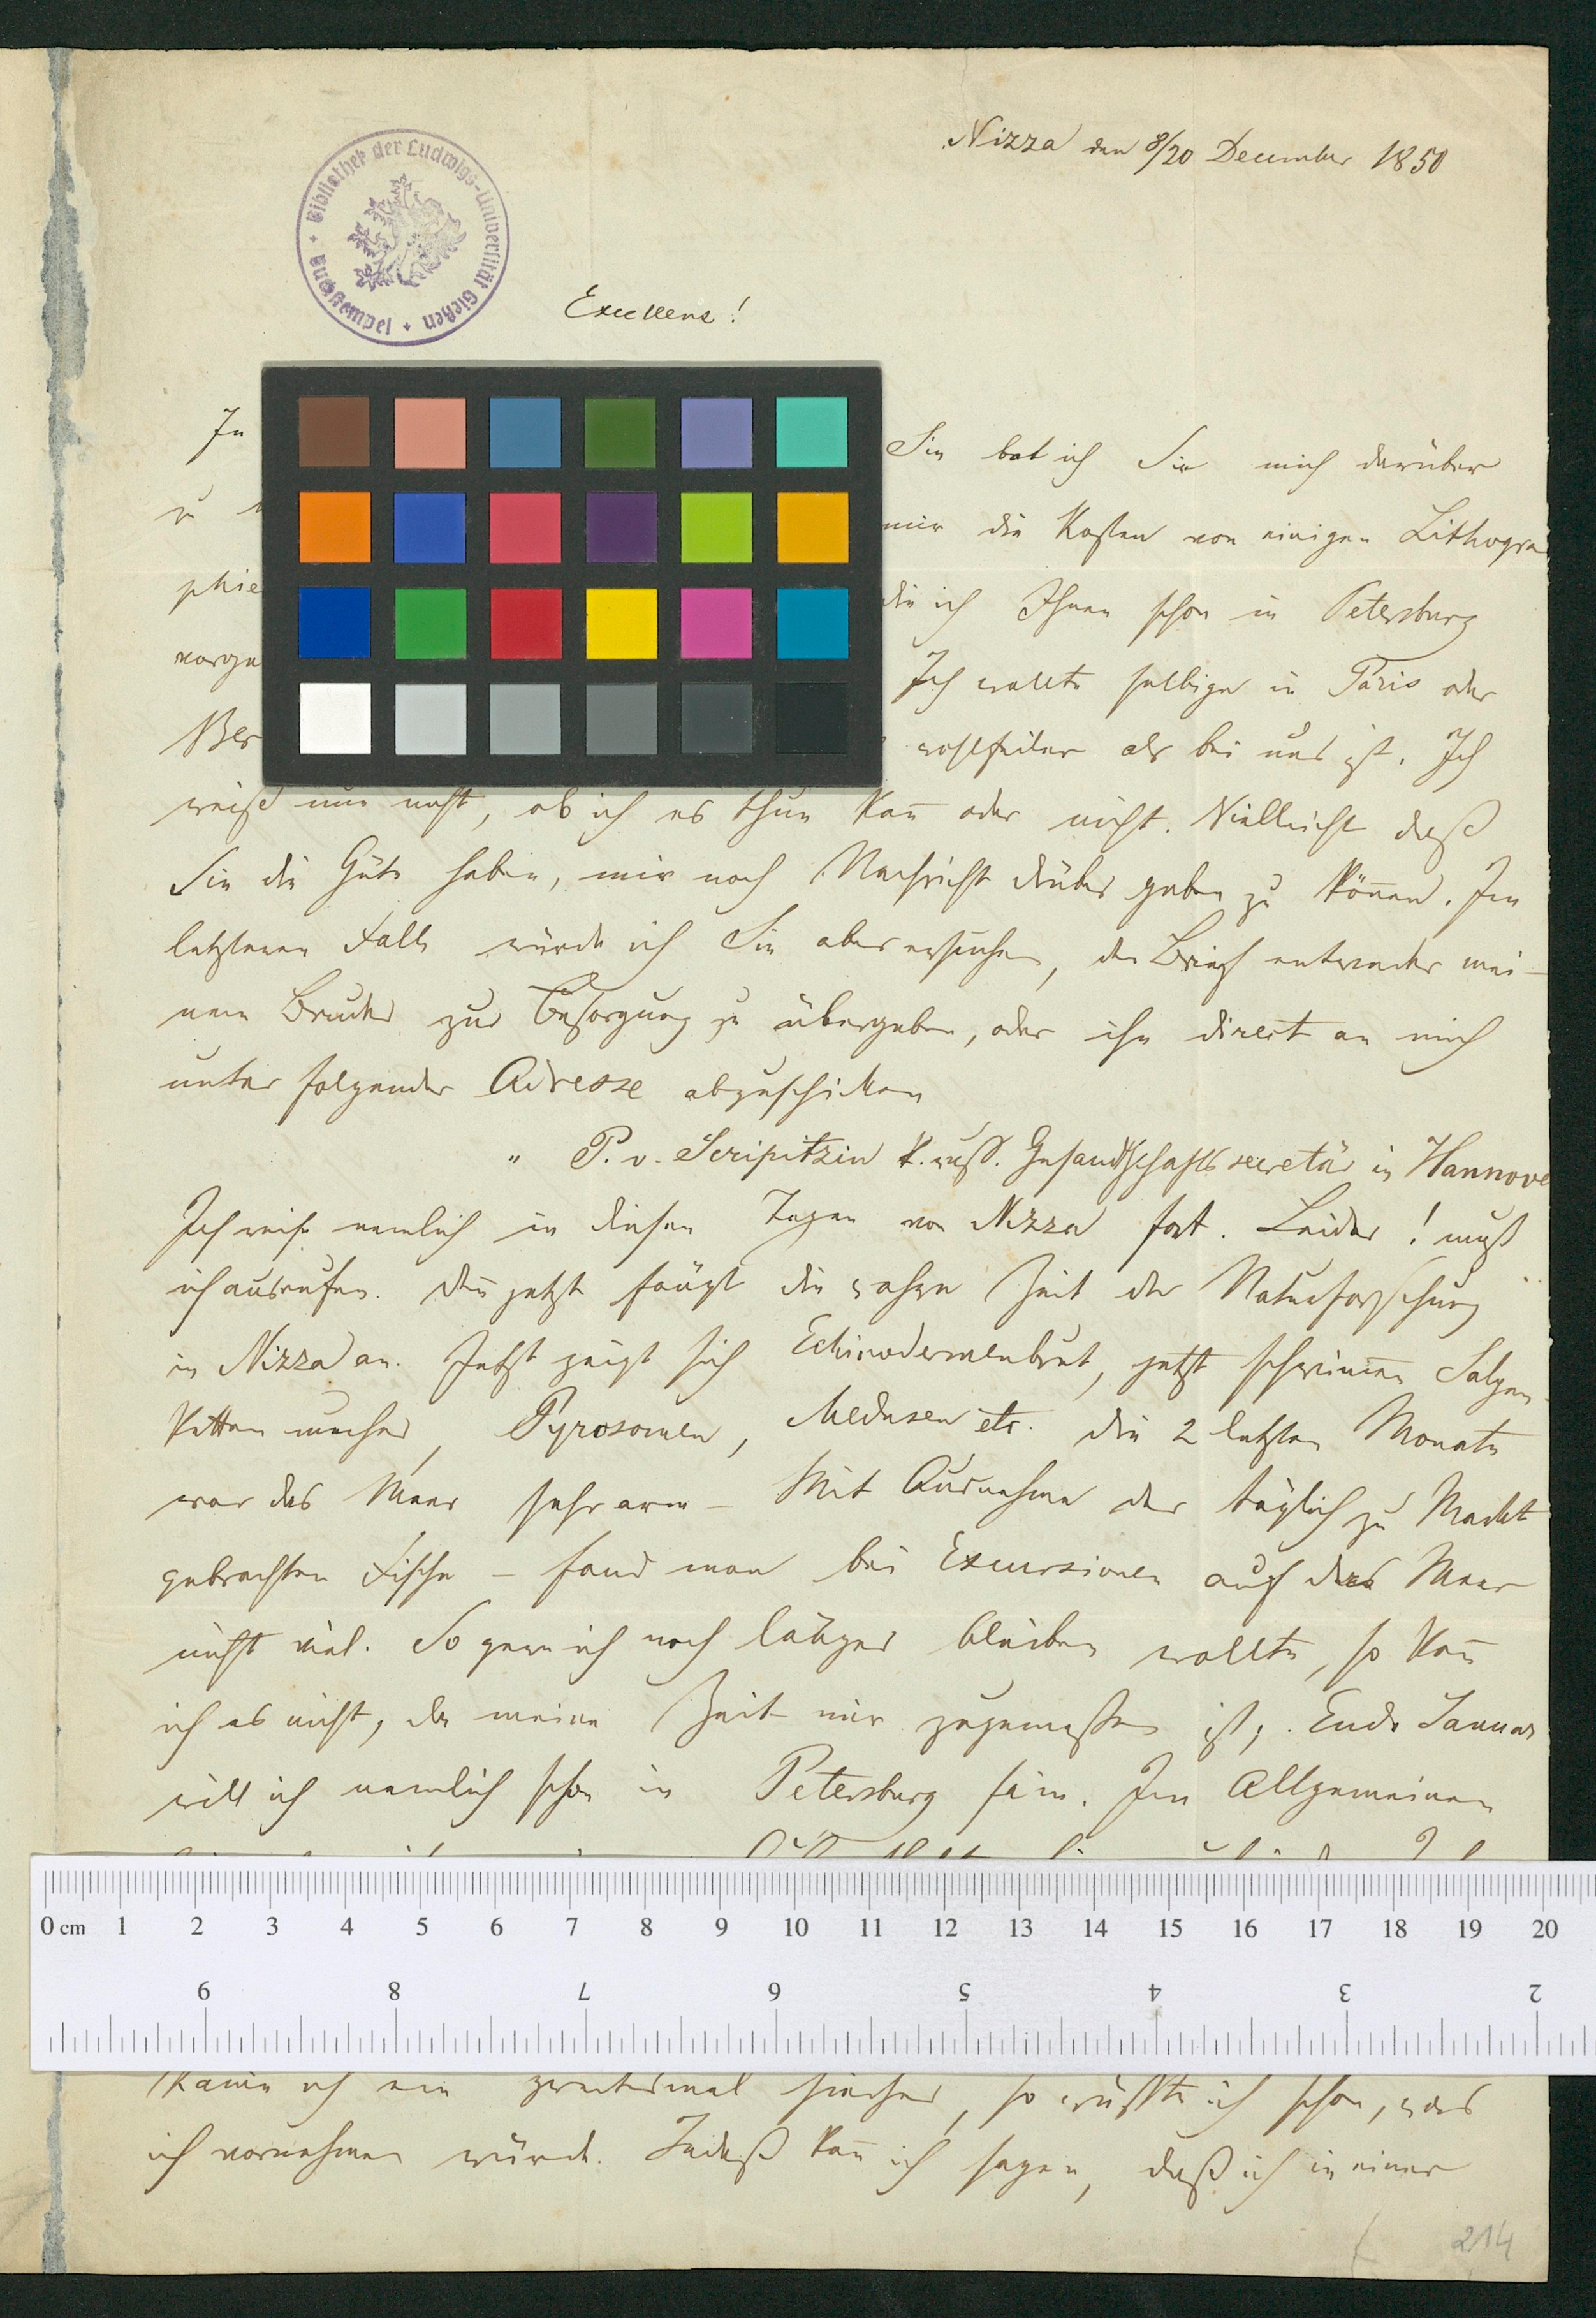 Nizza den 8/20 December 1850
Bibliothek der Ludwigs-Universität Gießen
Buchstempel
Excellenz!
In
Sie bat ich Sie mich darüber
u
mir die Kosten von einigen Lithogra
phie
die ich Ihnen schon in Petersburg
vorge
Ich wollte selbige in Paris oder
Ber
wohlfeiler als bei uns ist. Ich
weiß nun nicht, ob ich es thun kan̄ oder nicht. Vielleicht daß
Sie die Güte haben, mir noch Nachricht drüber geben zu kön̄en. Im
letzteren Falle würde ich Sie aber ersuchen, den Brief entweder mei-
nem Bruder zur Besorgung zu übergeben, oder ihn direct an mich
unter folgender Adresse abzuschicken
" P. v. Scripitzin k. russ. Gesandtschaftssecretär in Hannove
Ich reise nemlich in diesen Tagen von Nizza fort. Leider! muß
ich ausrufen. Den̄ jetzt fängt die wahre Zeit der Naturforschung
in Nizza an. Jetzt zeigt sich Echinodermenbrut, jetzt schwim̄en Salpen-
ketten umher, Pyrosomen, Medusen etc. Die 2 letzten Monate
war das Meer sehr arm – Mit Ausnahme der täglich zu Markt
gebrachten Fische – fand man bei Excursionen auf das Meer
nicht viel. So gern ich noch länger bleiben wollte, so kan̄
ich es nicht, da meine Zeit mir zugemessen ist; Ende Januar
will ich nemlich schon in Petersburg sein. Im Allgemeinen
0 cm 1 2 3 4 5 6 7 8 9 10 11 12 13 14 15 16 17 18 19 20
9 8 7 6 5 4 3 2
Käme ich ein zweitesmal hierher, so wüßte ich schon, was
ich vornehmen würde. Indeß kan̄ ich sagen, daß ich in einer
214